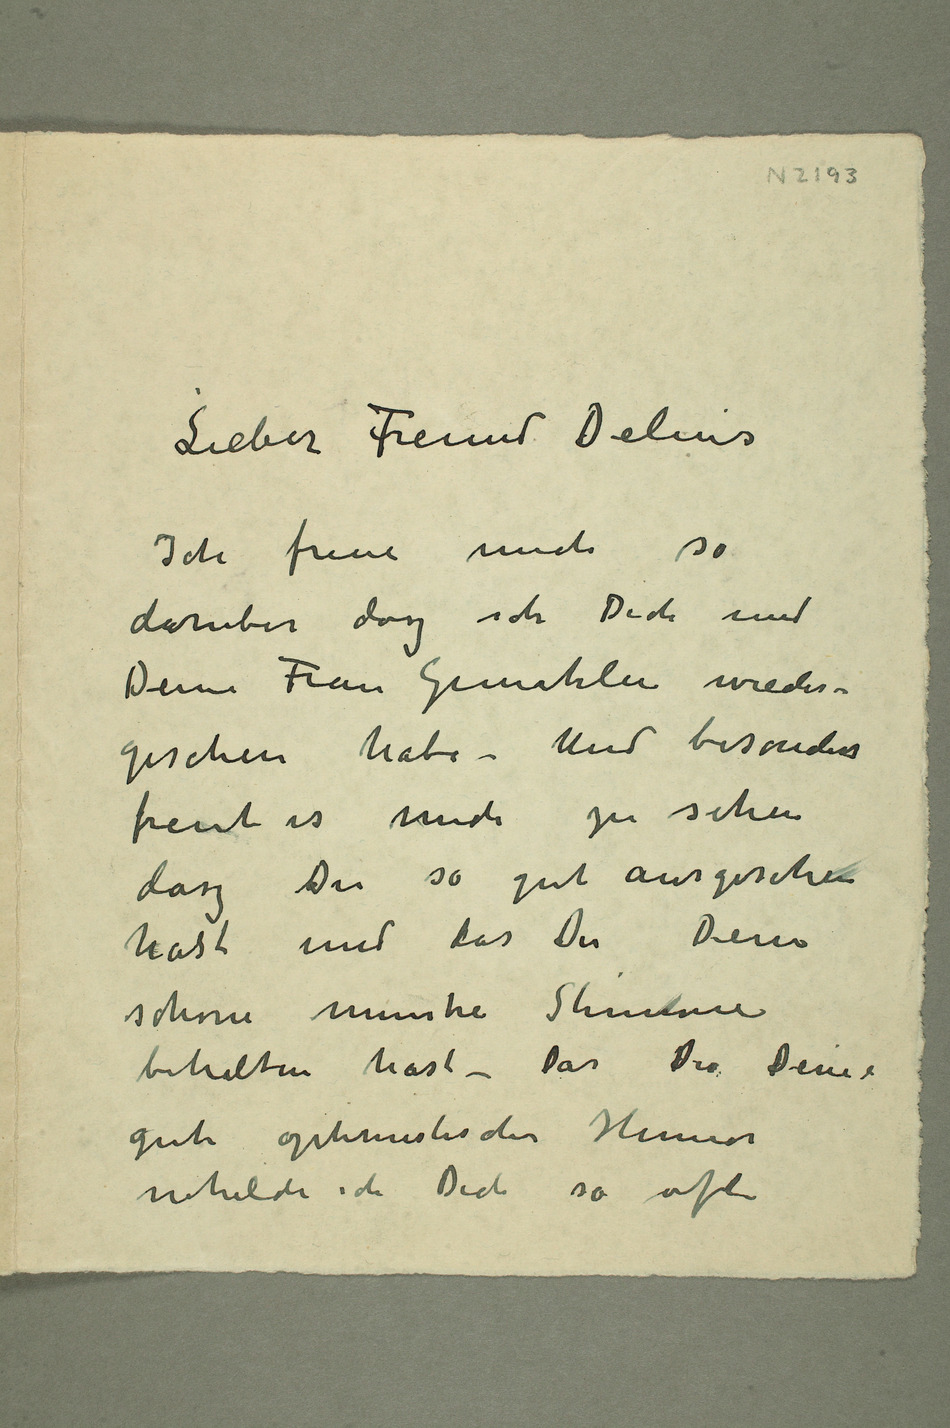 N 2193
Lieber Freund Delius
Ich freue mich so
daruber dasz ich Dich und
Deine Frau Gemahlin wieder-
gesehen habe – Und besonders
freut es mich zu sehen
dasz Du so gut ausgesehen
hast und das Du Deine
schöne muntre Stimme
behalten hast – das Du Deine
gute optimistischer Humor
ich Dich so oft